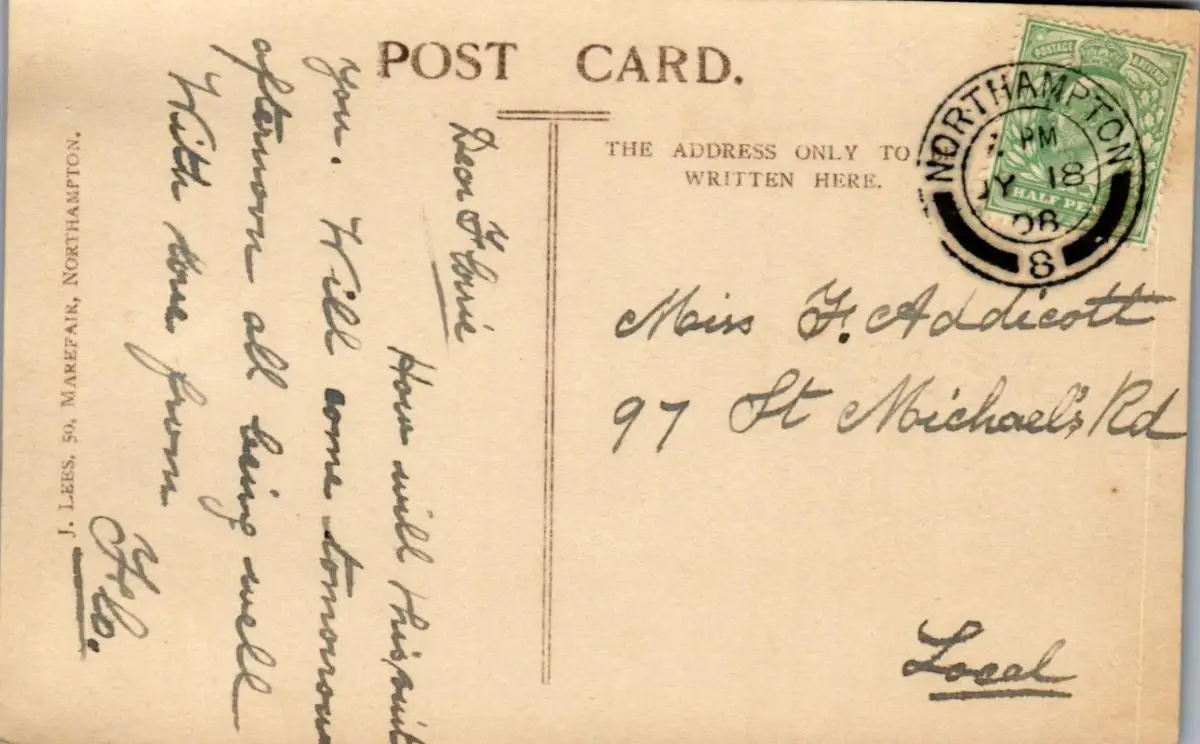 POST CARD.
THE ADDRESS ONLY TO
WRITTEN HERE.
POSTAGE
HALF PEN
NORTHAMPTON
PM
JY 18
08
8
Miss F. Addicott
97 St Michael's Rd
Local
Dear Florrie
How will this suit
you. Will come tomorrow
afternoon all being well
With love from
Flo.
J. LEES, 50, MAREFAIR, NORTHAMPTON.